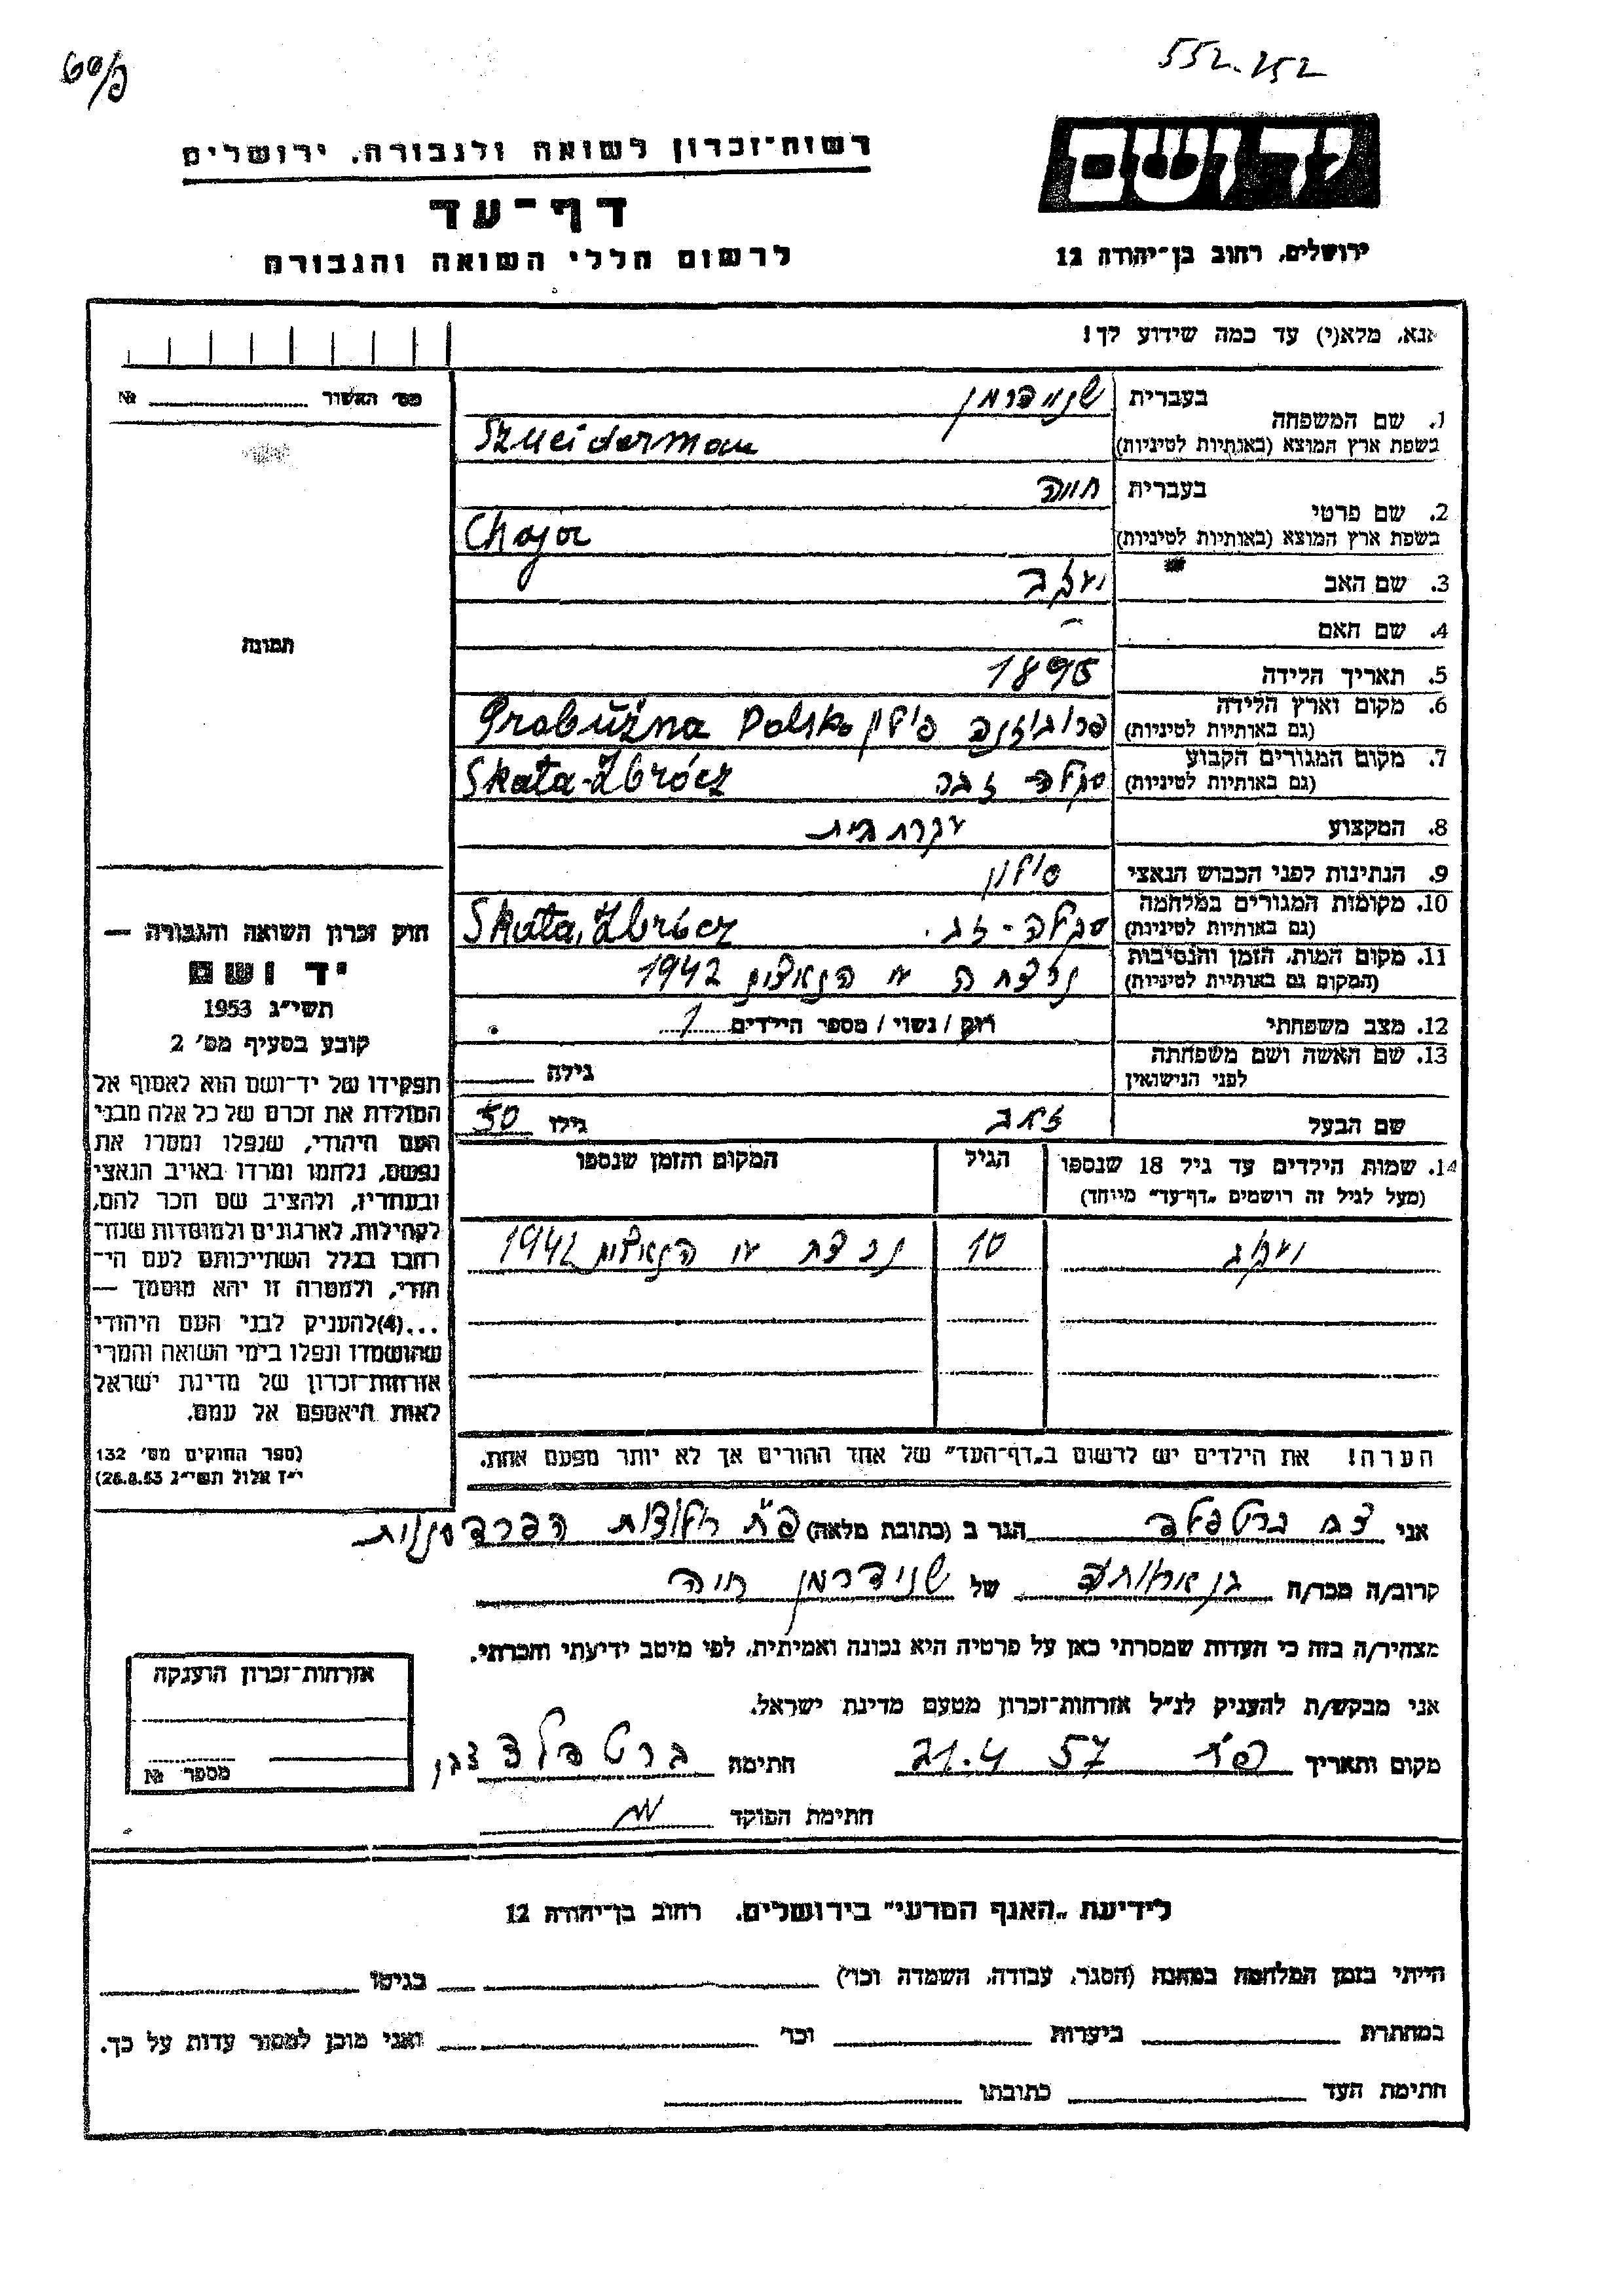 552.152
יד ושם
ירושלים, רחוב בן־יהודה 12
רשות־זכרון לשואה ולגבורה, ירושלים
דף־עד
לרשום חללי השואה והגבורה
אנא, מלא(י) עד כמה שידוע לך!
מס׳ האשור №
1. שם המשפחה
בעברית שניידרמן
בשפת ארץ המוצא (באותיות לטיניות) Szneiderman
2. שם פרטי
בעברית חיה
בשפת ארץ המוצא (באותיות לטיניות) Chaja
3. שם האב יעקב
4. שם האם -
5. תאריך הלידה 1895
6. מקום וארץ הלידה
(גם באותיות לטיניות) פרוביזנה פולין Probużna Polska
7. מקום המגורים הקבוע
(גם באותיות לטיניות) סקלה זבה Skała-Zbrócz
8. המקצוע עקרת בית
9. הנתינות לפני הכבוש הנאצי פולין
10. מקומות המגורים במלחמה
(גם באותיות לטינית) סקלה - זב. Skała, Zbrócz
11. מקום המות, הזמן והנסיבות
(המקום גם באותיות לטיניות) נרצחה ע הנאצים 1942
12. מצב משפחתי רוק / נשוי / מספר הילדים 1
13. שם האשה ושם משפחתה
לפני הנישואין
גילה
שם הבעל זאב גילו 50
14. שמות הילדים עד גיל 18 שנספו
(מעל לגיל זה רושמים „דף־עד״ מיוחד)
הגיל
המקום והזמן שנספו
יעקב 10 נרצח ע הנאצים 1942
הערה! את הילדים יש לרשום ב„דף־העד״ של אחד ההורים אך לא יותר מפעם אחת.
תמונה
חוק זכרון השואה והגבורה —
יד ושם
תשי״ג 1953
קובע בסעיף מס׳ 2
תפקידו של יד־ושם הוא לאסוף אל
המולדת את זכרם של כל אלה מבני
העם היהודי, שנפלו ומסרו את
נפשם, נלחמו ומרדו באויב הנאצי
ובעוזריו, ולהציב שם וזכר להם,
לקהילות, לארגונים ולמוסדות שנח־
רבו בגלל השתייכותם לעם הי־
הודי, ולמטרה זו יהא מוסמך —
...(4)להעניק לבני העם היהודי
שהושמדו ונפלו בימי השואה והמרי
אזרחות־זכרון של מדינת ישראל
לאות היאספם אל עמם.
(ספר החוקים מס׳ 132
י״ז אלול תשי״ג 26.8.53)
אני ברטפלד הגר ב (כתובת מלאה) פ״ת
קרוב/ה מכר/ה של שניידרמן חיה
מצהיר/ה בזה כי העדות שמסרתי כאן על פרטיה היא נכונה ואמיתית, לפי מיטב ידיעתי והכרתי.
אני מבקש/ת להעניק לנ״ל אזרחות־זכרון מטעם מדינת ישראל.
מקום ותאריך פ״ת 21.4 57 חתימה ברטפלד
חתימת הפוקד
אזרחות־זכרון הוענקה
מספר №
לידיעת „האגף המדעי״ בירושלים, רחוב בן־יהודה 12
הייתי בזמן המלחמה במחנה (הסגר, עבודה, השמדה וכו׳) בגיטו
במחתרת ביערות וכו׳ ואני מוכן למסור עדות על כך.
חתימת העד כתובתו